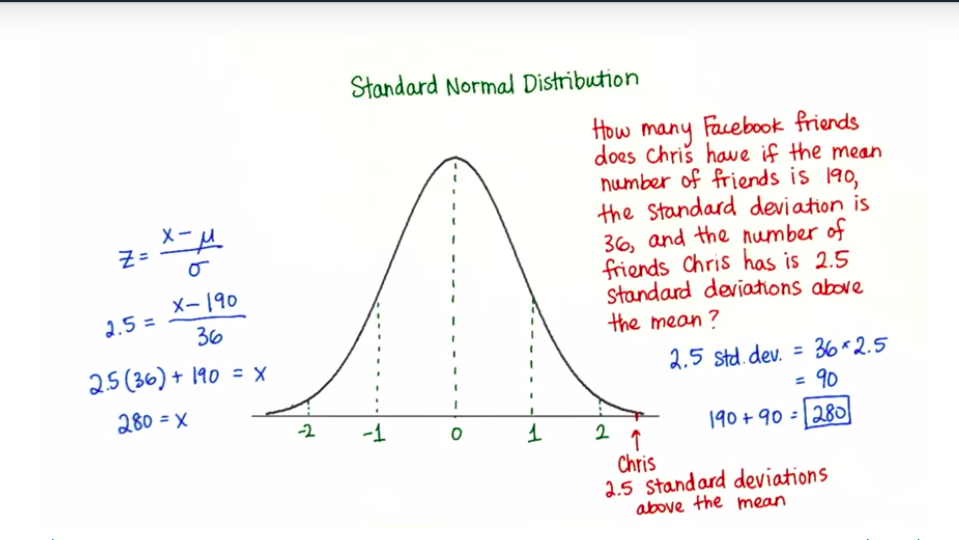 Standard Normal Distribution
How many Facebook friends
does Chris have if the mean
number of friends is 190,
the standard deviation is
36, and the number of
friends Chris has is 2.5
standard deviations above
the mean?
z = x - μ / σ
2.5 = x - 190 / 36
2.5(36) + 190 = x
280 = x
2.5 std. dev. = 36 × 2.5
= 90
190 + 90 = 280
-2 -1 0 1 2
Chris
2.5 standard deviations
above the mean